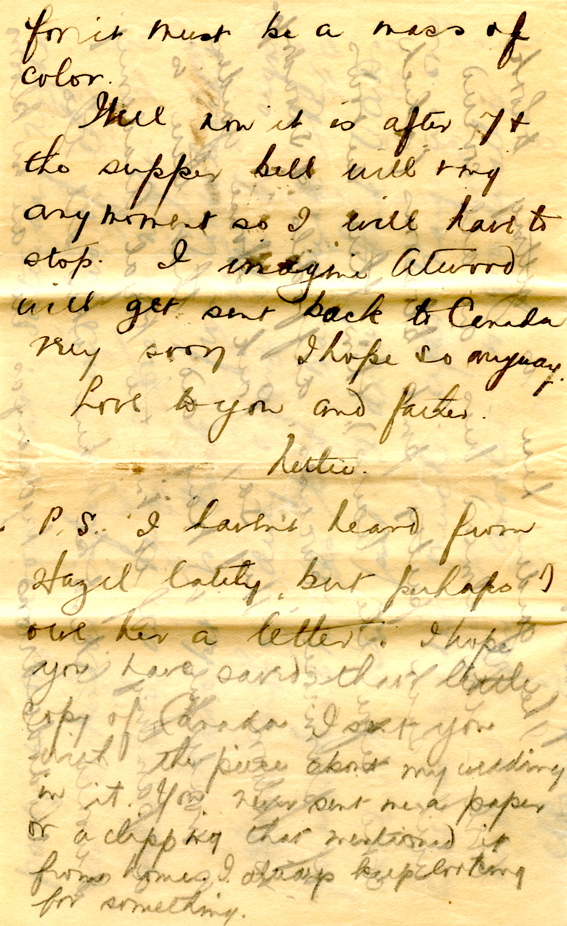 for it must be a mass of
color.
Well now it is after 7 &
the supper bell will ring
any moment so I will have to
stop. I imagine Atwood
will get sent back to Canada
very soon I hope so anyway.
Love to you and father.
P.S. I haven't heard from
Hazel lately, but perhaps I
owe her a letter. I hope
you have saved that little
copy of Canada I sent you
with the piece about my wedding
in it. You never sent me a paper
or a clipping that mentioned it
from home, I always keep looking
for something.